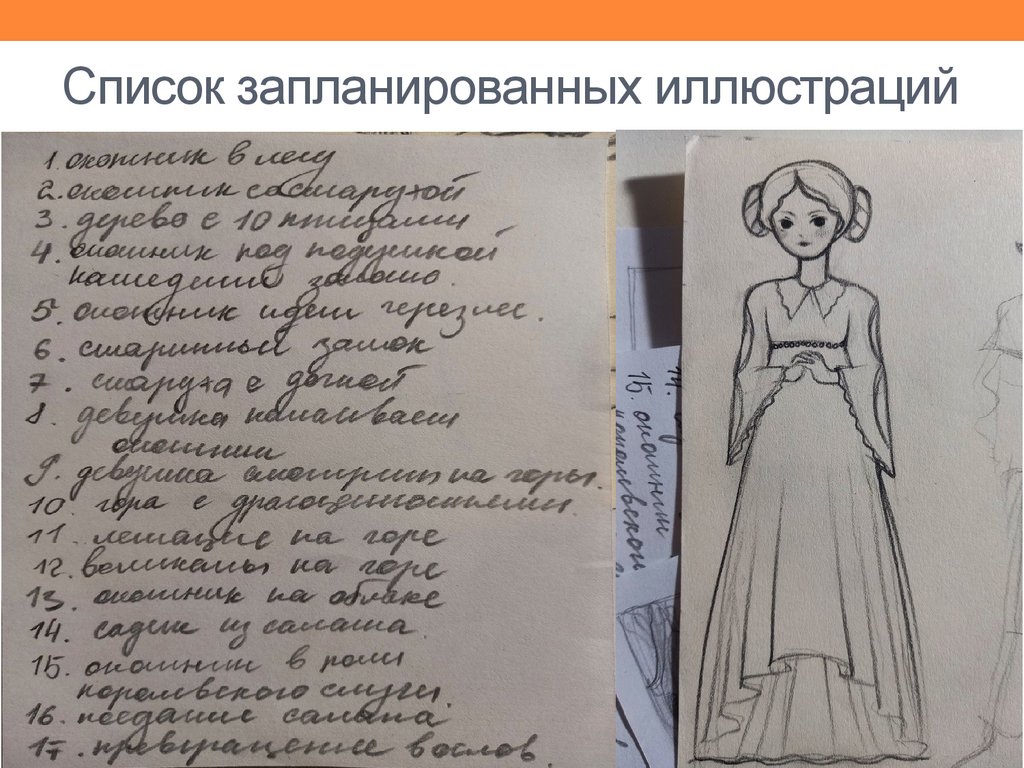 Список запланированных иллюстраций
1. охотник в лесу
2. охотник со старухой
3. дерево с 10 птицами
4. охотник под подушкой
нашедший золото.
5. охотник идет через лес.
6. старинный замок
7. старуха с дочкой
8. девушка
охотник
9. девушка смотрит на горы.
10. гора с драгоценностями.
11. лежащие на горе
12. великаны на горе
13. охотник на облаке
14. садик из салата.
15. охотник в роли
королевского слуги.
16. поедание салата
17. превращение в ослов.
14.
15. охотник
королевской